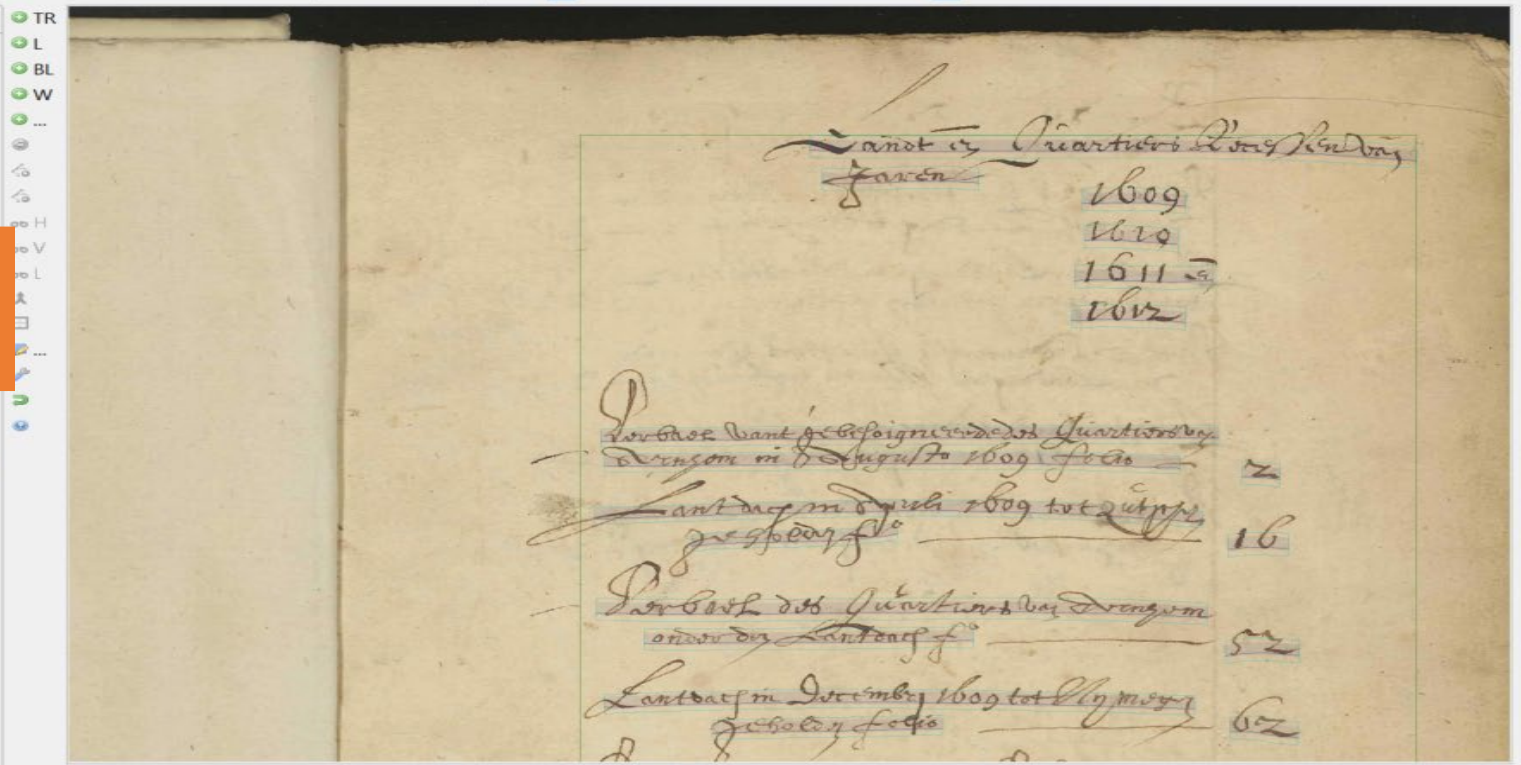 TR
L
BL
W
...
H
V
L
...
Landt en Quartiers Recessen van
Jaren
1609
1610
1611 en
1612
Verbael vant gebesoigneerde des Quartiers van
Arnhem in Augusto 1609 folio 2
Lantdach in Julii 1609 tot Zutphen
geholden fo 16
Verbael des Quartiers van Arnhem
onder den Lantdach fo 52
Lantdach in Decembri 1609 tot Nymegen
geholden folio 62